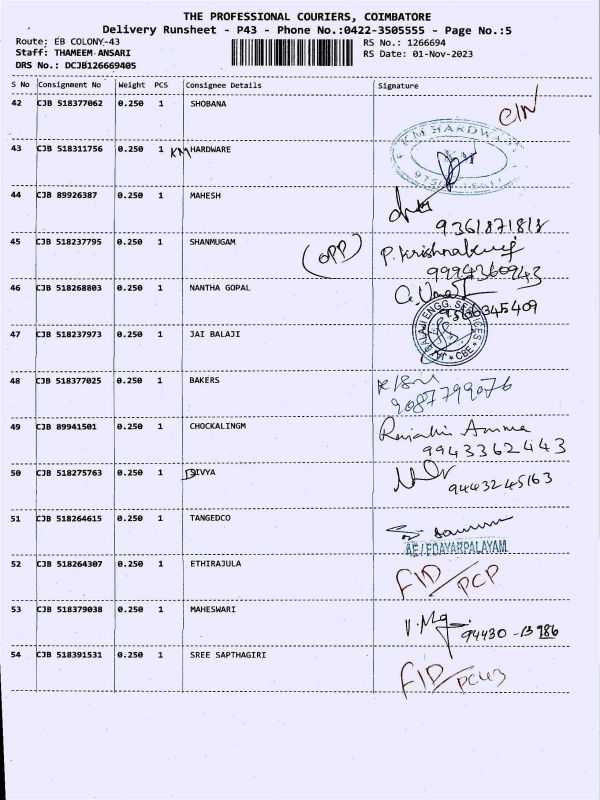 THE PROFESSIONAL COURIERS, COIMBATORE
Delivery Runsheet - P43 - Phone No.:0422-3505555 - Page No.:5
Route: EB COLONY-43 RS No.: 1266694
Staff: THAMEEM ANSARI RS Date: 01-Nov-2023
DRS No.: DCJB126669405
S No Consignment No Weight PCS Consignee Details Signature
42 CJB 518377062 0.250 1 SHOBANA
43 CJB 518311756 0.250 1 KM HARDWARE KM HARDWARE
44 CJB 89926387 0.250 1 MAHESH
9361871818
45 CJB 518237795 0.250 1 SHANMUGAM (OPP)
9994360943
46 CJB 518268803 0.250 1 NANTHA GOPAL
47 CJB 518237973 0.250 1 JAI BALAJI JAI BALAJI ENGG. SERVICES * CBE *
48 CJB 518377025 0.250 1 BAKERS
9087799076
49 CJB 89941501 0.250 1 CHOCKALINGM
9943362443
50 CJB 518275763 0.250 1 DIVYA
9443245163
51 CJB 518264615 0.250 1 TANGEDCO
AE/EDAYARPALAYAM
52 CJB 518264307 0.250 1 ETHIRAJULA FID/PCP
53 CJB 518379038 0.250 1 MAHESWARI V.Mg
94430-13986
54 CJB 518391531 0.250 1 SREE SAPTHAGIRI FID/